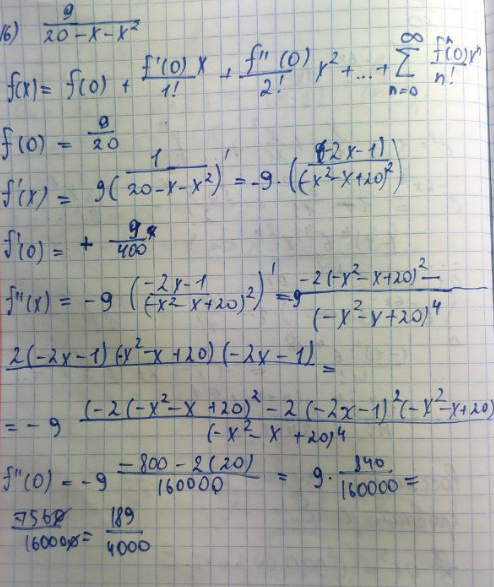 16) 9/(20-x-x²)
f(x) = f(0) + f'(0)x/1! + f''(0)/2! x² + ... + ∑_{n=0}^{∞} fⁿ(0)xⁿ/n!
f(0) = 9/20
f'(x) = 9(1/(20-x-x²))' = -9·((-2x-1)/(-x²-x+20)²)
f'(0) = + 9/400
f''(x) = -9 ((-2x-1)/(-x²-x+20)²)' = 9 (-2(-x²-x+20)² - 
2(-2x-1)(-x²-x+20)(-2x-1))/(-x²-x+20)⁴ =
= -9 (-2(-x²-x+20)² - 2(-2x-1)²(-x²-x+20))/(-x²-x+20)⁴
f''(0) = -9 (-800-2(20))/160000 = 9·840/160000 =
7560/160000 = 189/4000